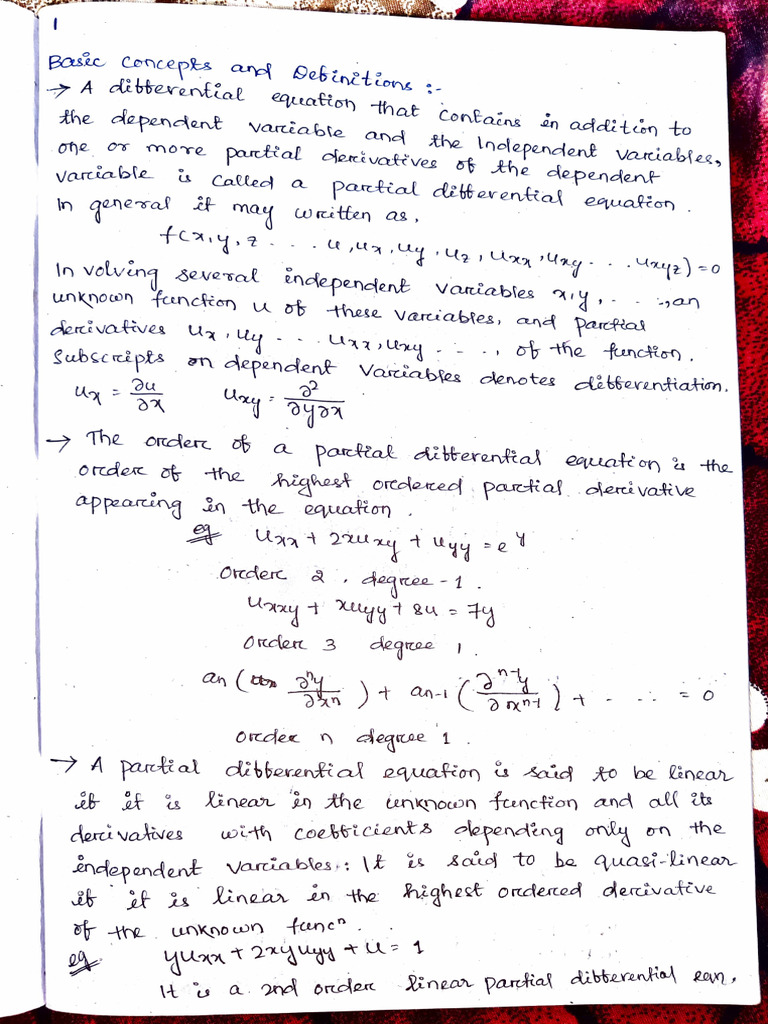 1
Basic Concepts and Definitions :-
→ A differential equation that contains in addition to
the dependent variable and the Independent variables,
one or more partial derivatives of the dependent
variable is called a partial differential equation.
In general it may written as,
f(x, y, z . . . . u, ux, uy, uz, uxx, uxy . . . . uxyz) = 0
In volving several independent variables x, y, . . ., an
unknown function u of these variables, and partial
derivatives ux, uy . . . uxx, uxy . . . ., of the function.
Subscripts on dependent variables denotes differentiation.
ux = ∂u/∂x    uxy = ∂²/∂y∂x
→ The order of a partial differential equation is the
order of the highest ordered partial derivative
appearing in the equation.
eg uxx + 2xuxy + uyy = e^y
Order 2, degree - 1.
uxxy + xuyy + 8u = 7y
Order 3 degree 1.
an (∂ⁿy/∂xⁿ) + an-1 (∂ⁿ⁻¹y/∂xⁿ⁻¹) + . . . . . = 0
order n degree 1.
→ A partial differential equation is said to be linear
if it is linear in the unknown function and all its
derivatives with coefficients depending only on the
independent variables.: It is said to be quasi-linear
if it is linear in the highest ordered derivative
of the unknown funcⁿ.
eg yuxx + 2xyuyy + u = 1
It is a 2nd order linear partial differential eqn.